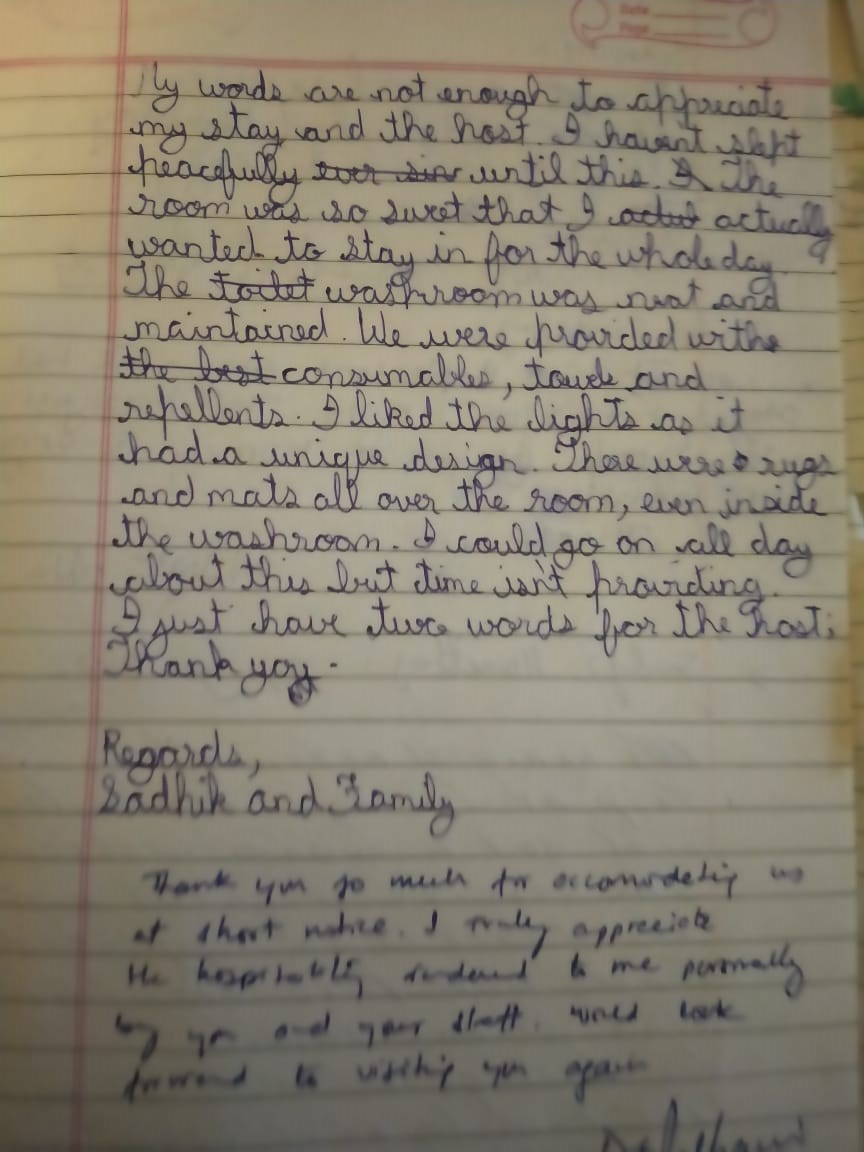 Date
Page
My words are not enough to appriciate
my stay and the host. I havent slept
peacefully ever sinc until this. I The
room was so sweet that I actut actually
wanted to stay in for the whole day
The toilet washroom was neat and
maintained. We were provided withe
the best consumables, towels and
repellents. I liked the lights as it
had a unique design. There were rugs
and mats all over the room, even inside
the washroom. I could go on all day
about this but time isn't providing.
I just have two words for the host:
Thank you.
Regards,
Sadhik and Family
Thank you so much for accomodating us
at short notice. I truly appreciate
the hospitality rendered to me personally
by you and your staff. would look
forward to visiting you again